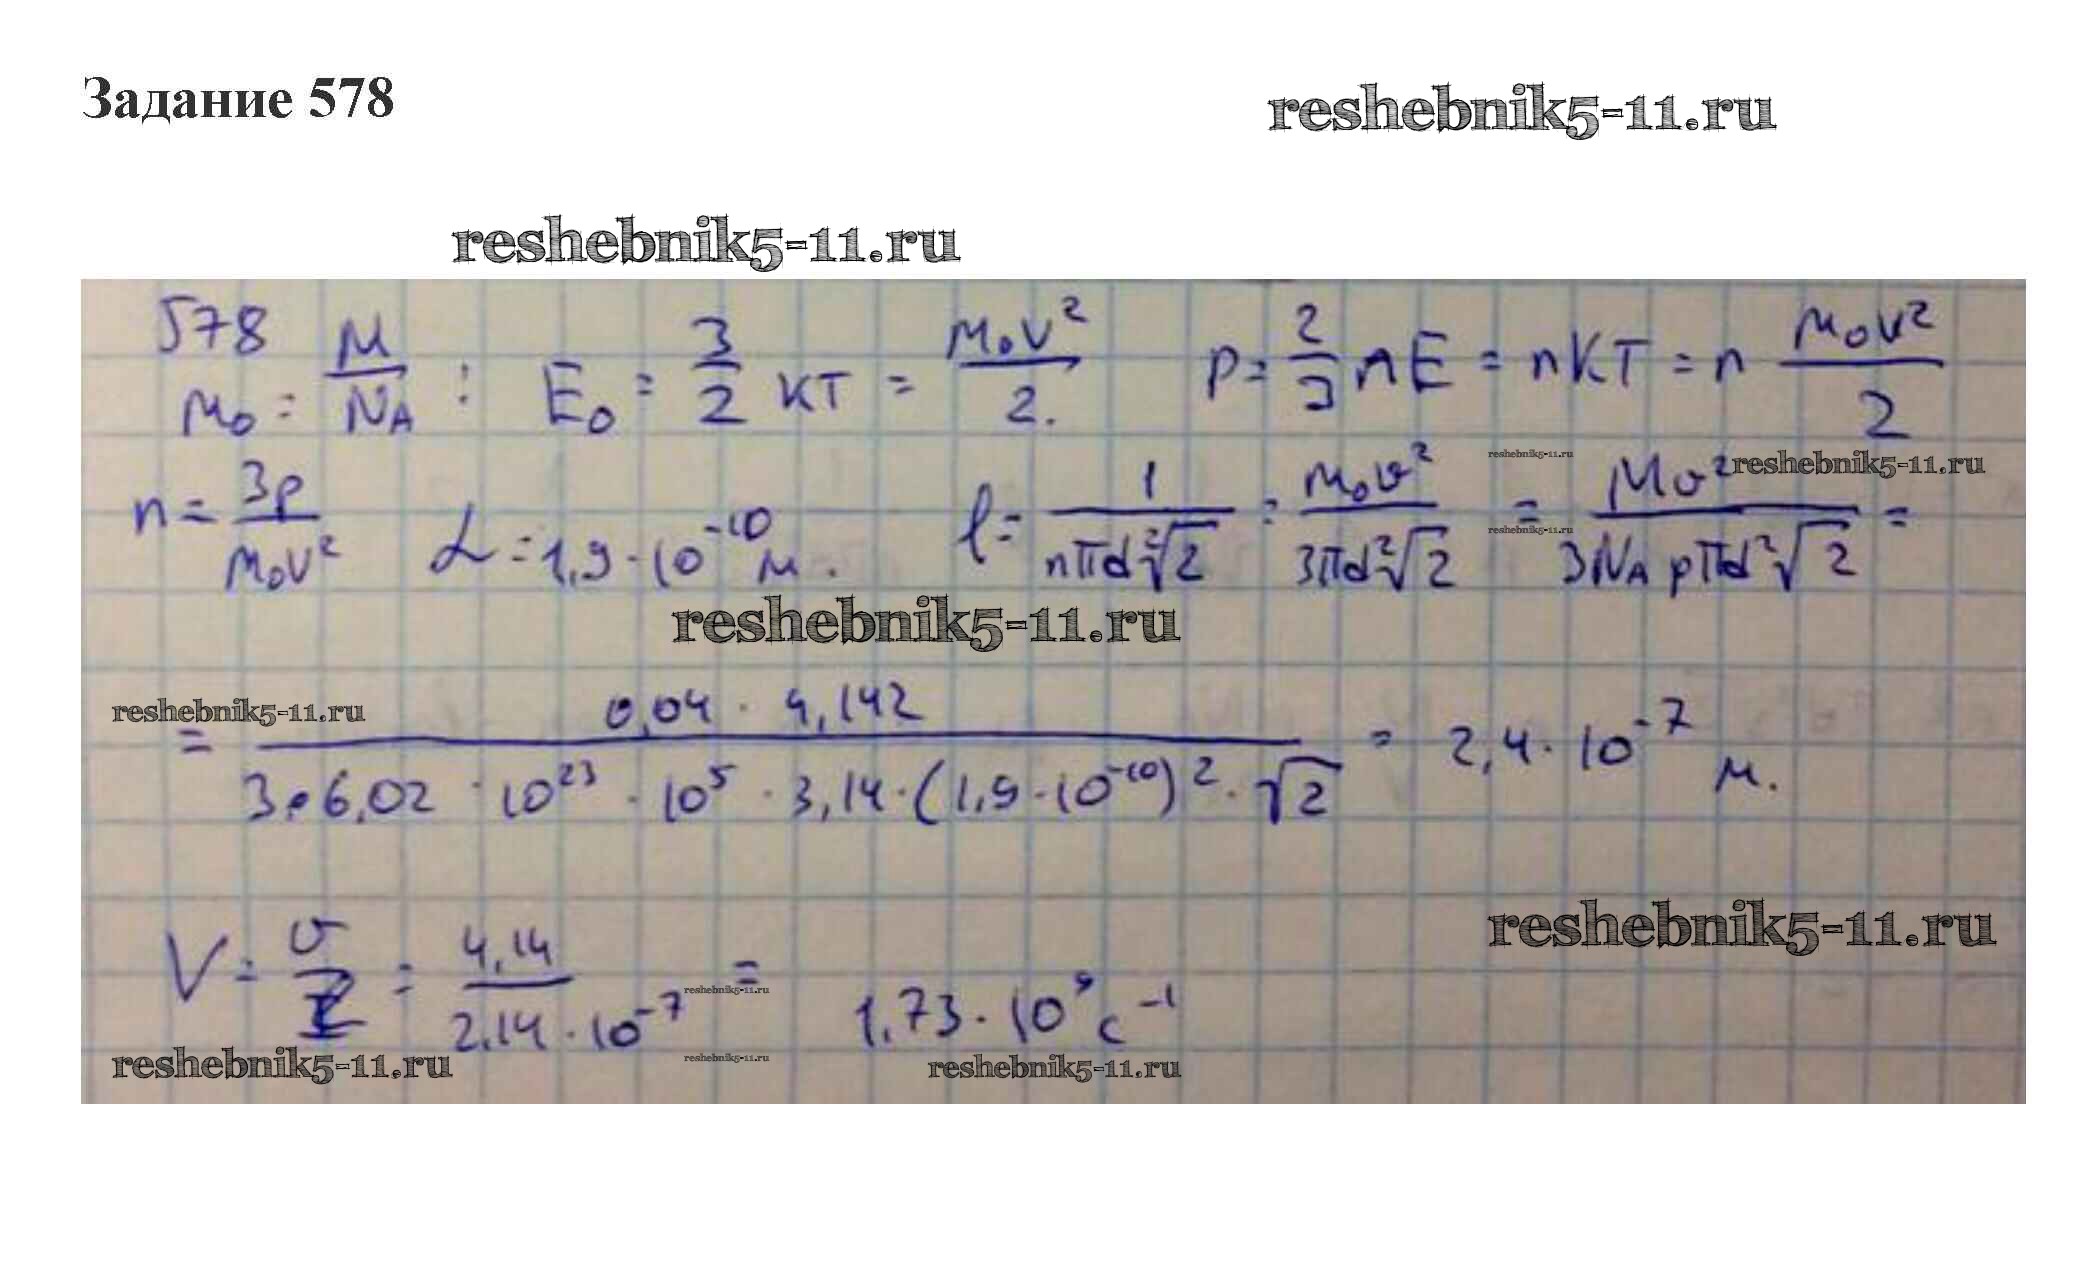 Задание 578
reshebnik5-11.ru
reshebnik5-11.ru
578
m₀ = M/N_A ; E₀ = 3/2 кТ = m₀v²/2. p = 2/3 nE = nкТ = n m₀v²/2
reshebnik5-11.ru
reshebnik5-11.ru
n = 3p/m₀v² L = 1,9·10⁻¹⁰ м. l = 1/(nπd²√2) = m₀v²/(3πd²√2) = Mv²/(3N_A pπd²√2) =
reshebnik5-11.ru
reshebnik5-11.ru
reshebnik5-11.ru
= (0,04 · 4,142)/(3·6,02 · 10²³ · 10⁵ · 3,14·(1,9·10⁻¹⁰)²·√2) = 2,4·10⁻⁷ м.
reshebnik5-11.ru
V = v/l = 4,14/(2,14·10⁻⁷) = 1,73·10⁹ с⁻¹
reshebnik5-11.ru
reshebnik5-11.ru
reshebnik5-11.ru
reshebnik5-11.ru